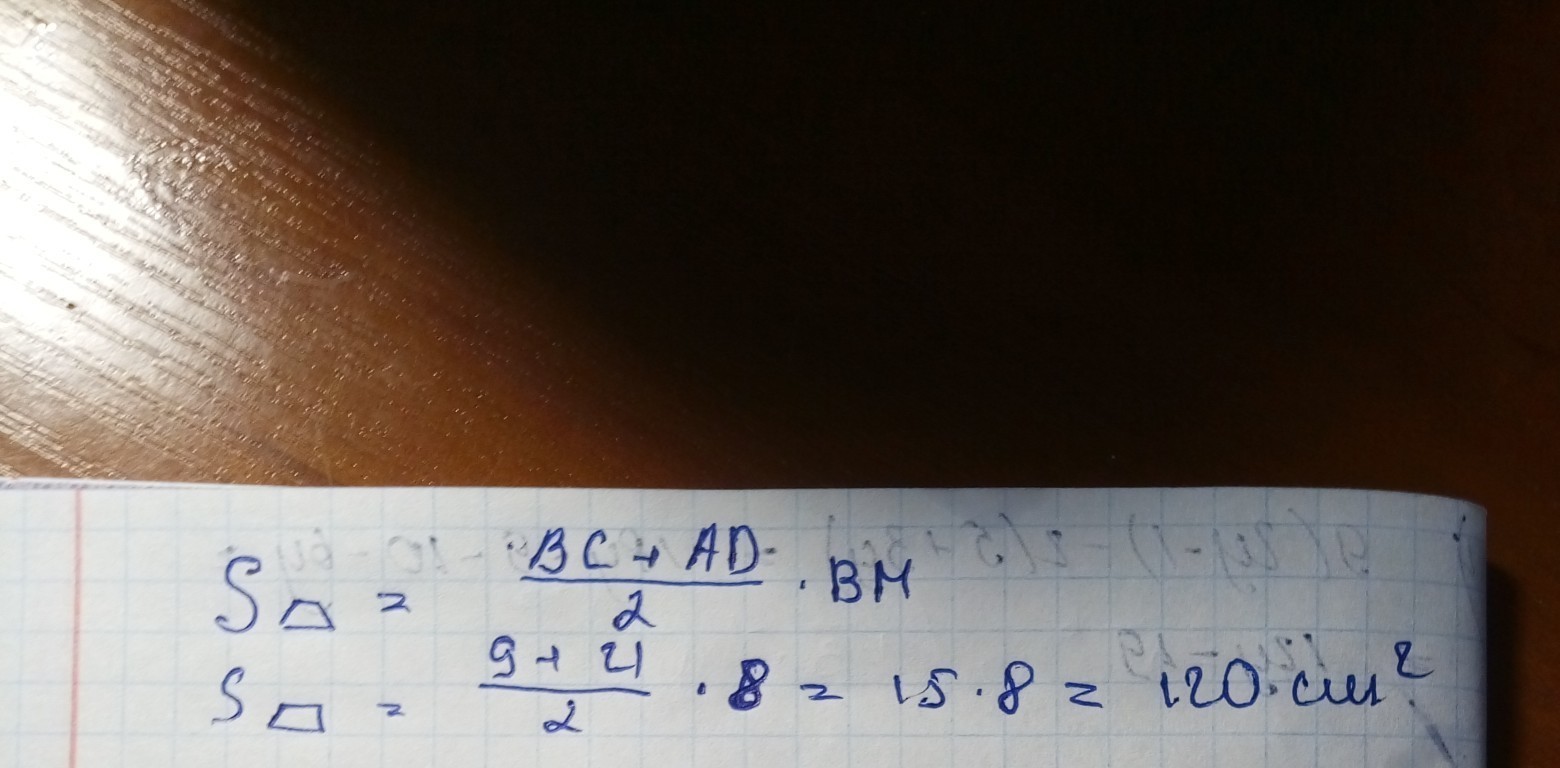 S⏢ = BC + AD / 2 · BM
S⏢ = 9 + 21 / 2 · 8 = 15 · 8 = 120 см²